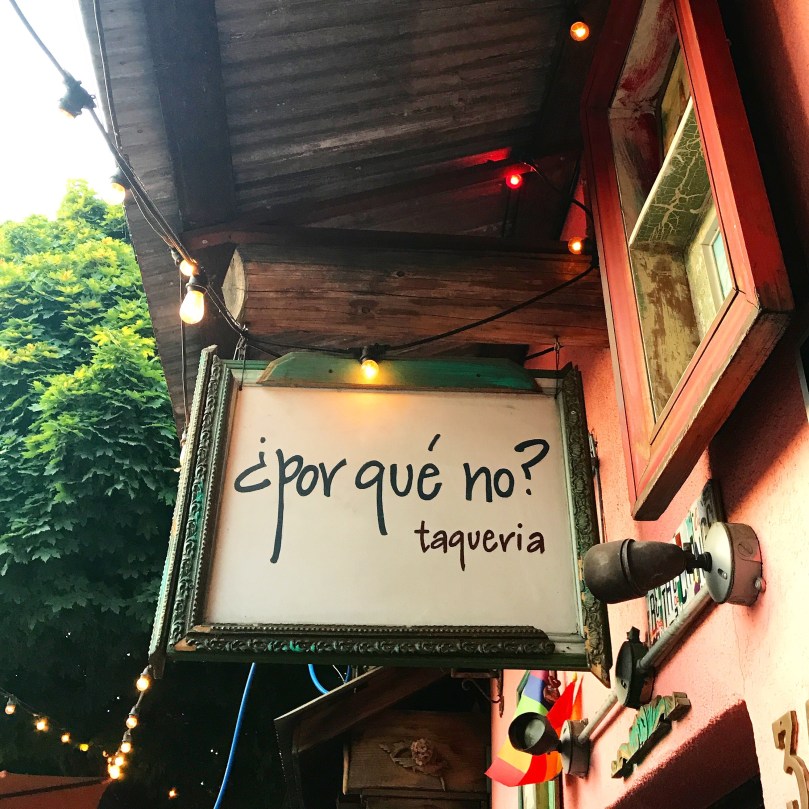 ¿por qué no?
taqueria
3